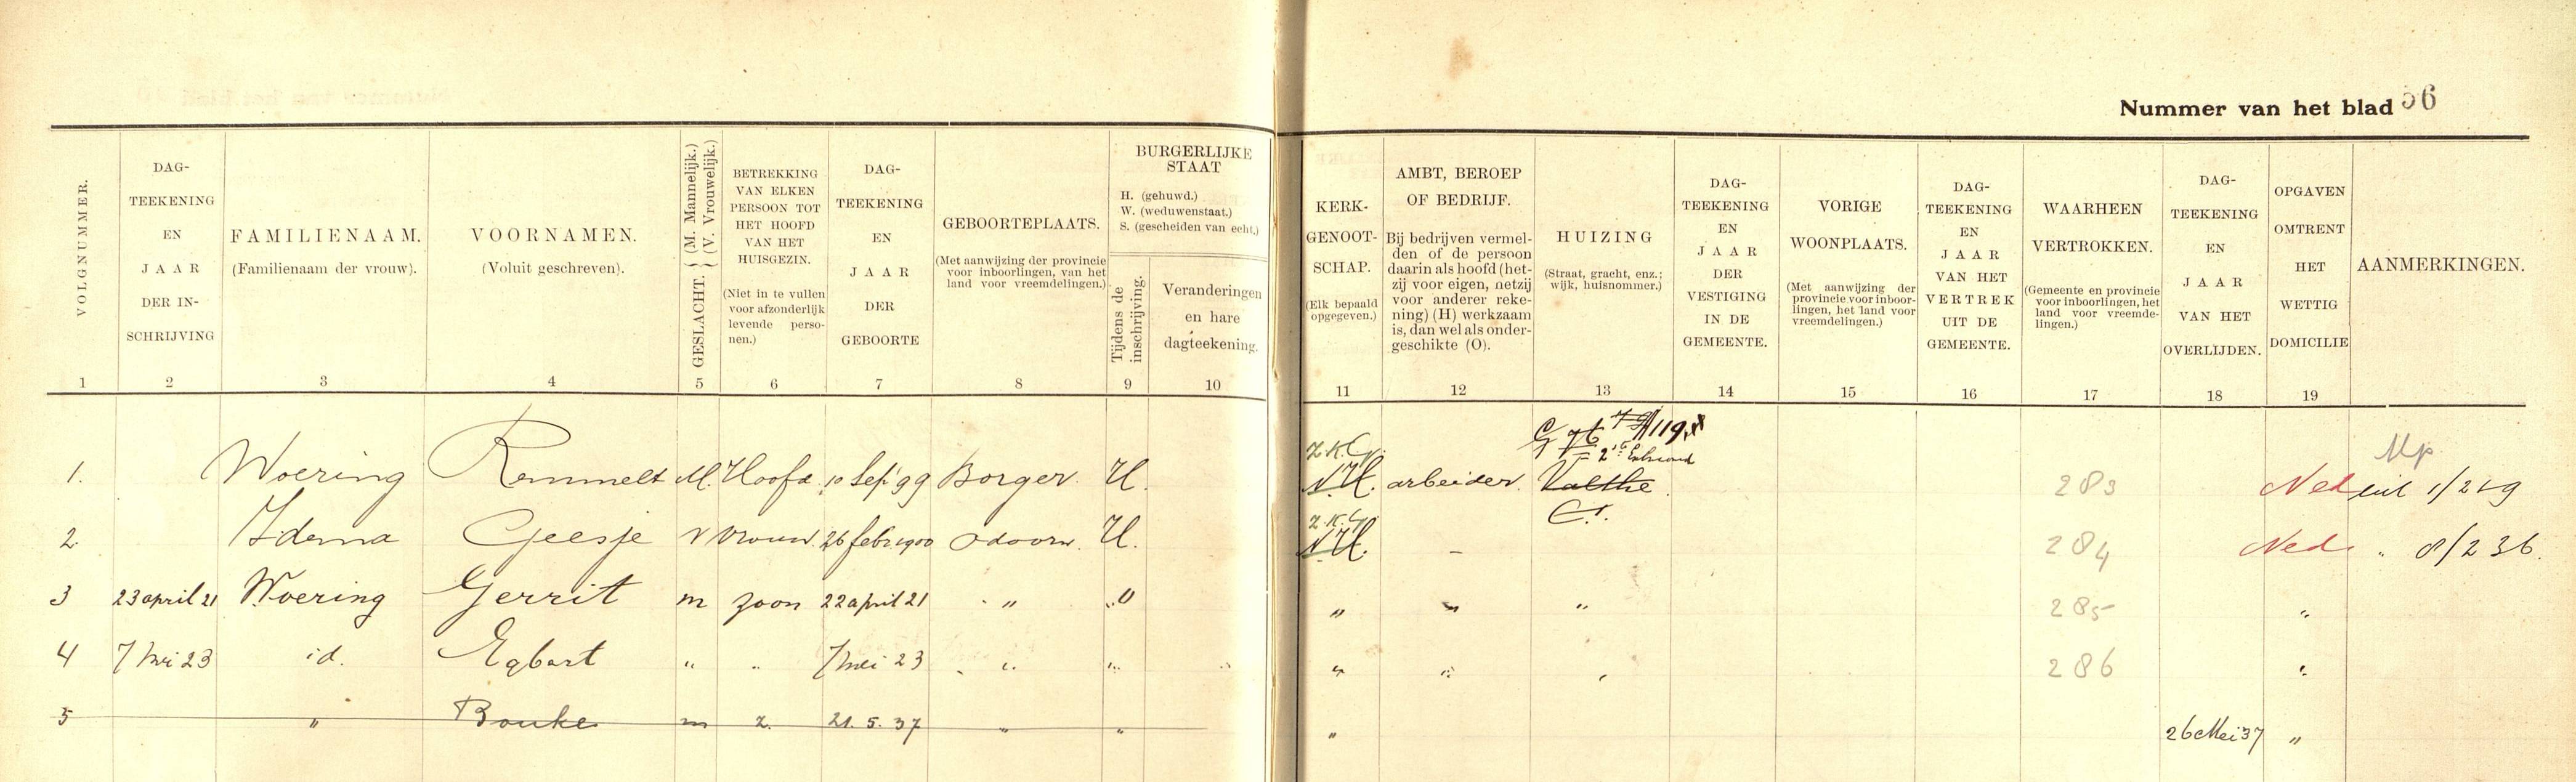 Nummer van het blad 56
VOLGNUMMER.
DAG-
TEEKENING
EN
JAAR
DER IN-
SCHRIJVING
FAMILIENAAM.
(Familienaam der vrouw).
VOORNAMEN.
(Voluit geschreven).
GESLACHT. { (M. Mannelijk.)
(V. Vrouwelijk.)
BETREKKING
VAN ELKEN
PERSOON TOT
HET HOOFD
VAN HET
HUISGEZIN.
(Niet in te vullen
voor afzonderlijk
levende perso-
nen.)
DAG-
TEEKENING
EN
JAAR
DER
GEBOORTE
GEBOORTEPLAATS.
(Met aanwijzing der provincie
voor inboorlingen, van het
land voor vreemdelingen.)
BURGERLIJKE
STAAT
H. (gehuwd.)
W. (weduwenstaat.)
S. (gescheiden van echt.)
Tijdens de
inschrijving.
Veranderingen
en hare
dagteekening.
KERK-
GENOOT-
SCHAP.
(Elk bepaald
opgegeven.)
AMBT, BEROEP
OF BEDRIJF.
Bij bedrijven vermel-
den of de persoon
daarin als hoofd (het-
zij voor eigen, netzij
voor anderer reke-
ning) (H) werkzaam
is, dan wel als onder-
geschikte (O).
HUIZING
(Straat, gracht, enz.;
wijk, huisnommer.)
DAG-
TEEKENING
EN
JAAR
DER
VESTIGING
IN DE
GEMEENTE.
VORIGE
WOONPLAATS.
(Met aanwijzing der
provincie voor inboor-
lingen, het land voor
vreemdelingen.)
DAG-
TEEKENING
EN
JAAR
VAN HET
VERTREK
UIT DE
GEMEENTE.
WAARHEEN
VERTROKKEN.
(Gemeente en provincie
voor inboorlingen, het
land voor vreemde-
lingen.)
DAG-
TEEKENING
EN
JAAR
VAN HET
OVERLIJDEN.
OPGAVEN
OMTRENT
HET
WETTIG
DOMICILIE
AANMERKINGEN.
1 2 3 4 5 6 7 8 9 10 11 12 13 14 15 16 17 18 19
Z.K.G.
1. Woering Remmelt M. Hoofd 10 Sep '99 Borger. H. N.H. arbeider. Valthe. 283 Ned
Z.K.G.
2. Idema Geesje V Vrouw. 26 febr 1900 Odoorn. H. N.H. – 284 Ned. „ 8/2 36.
3 23 april 21 Woering Gerrit m zoon 22 april 21 „ „ „ „ „ 285 „
4 7 Mei 23 id. Egbert „ „ 7 Mei 23 „ „ „ „ „ 286 „
5 „ Bouke m z. 21.5.37 „ „ „ 26 Mei 37 „